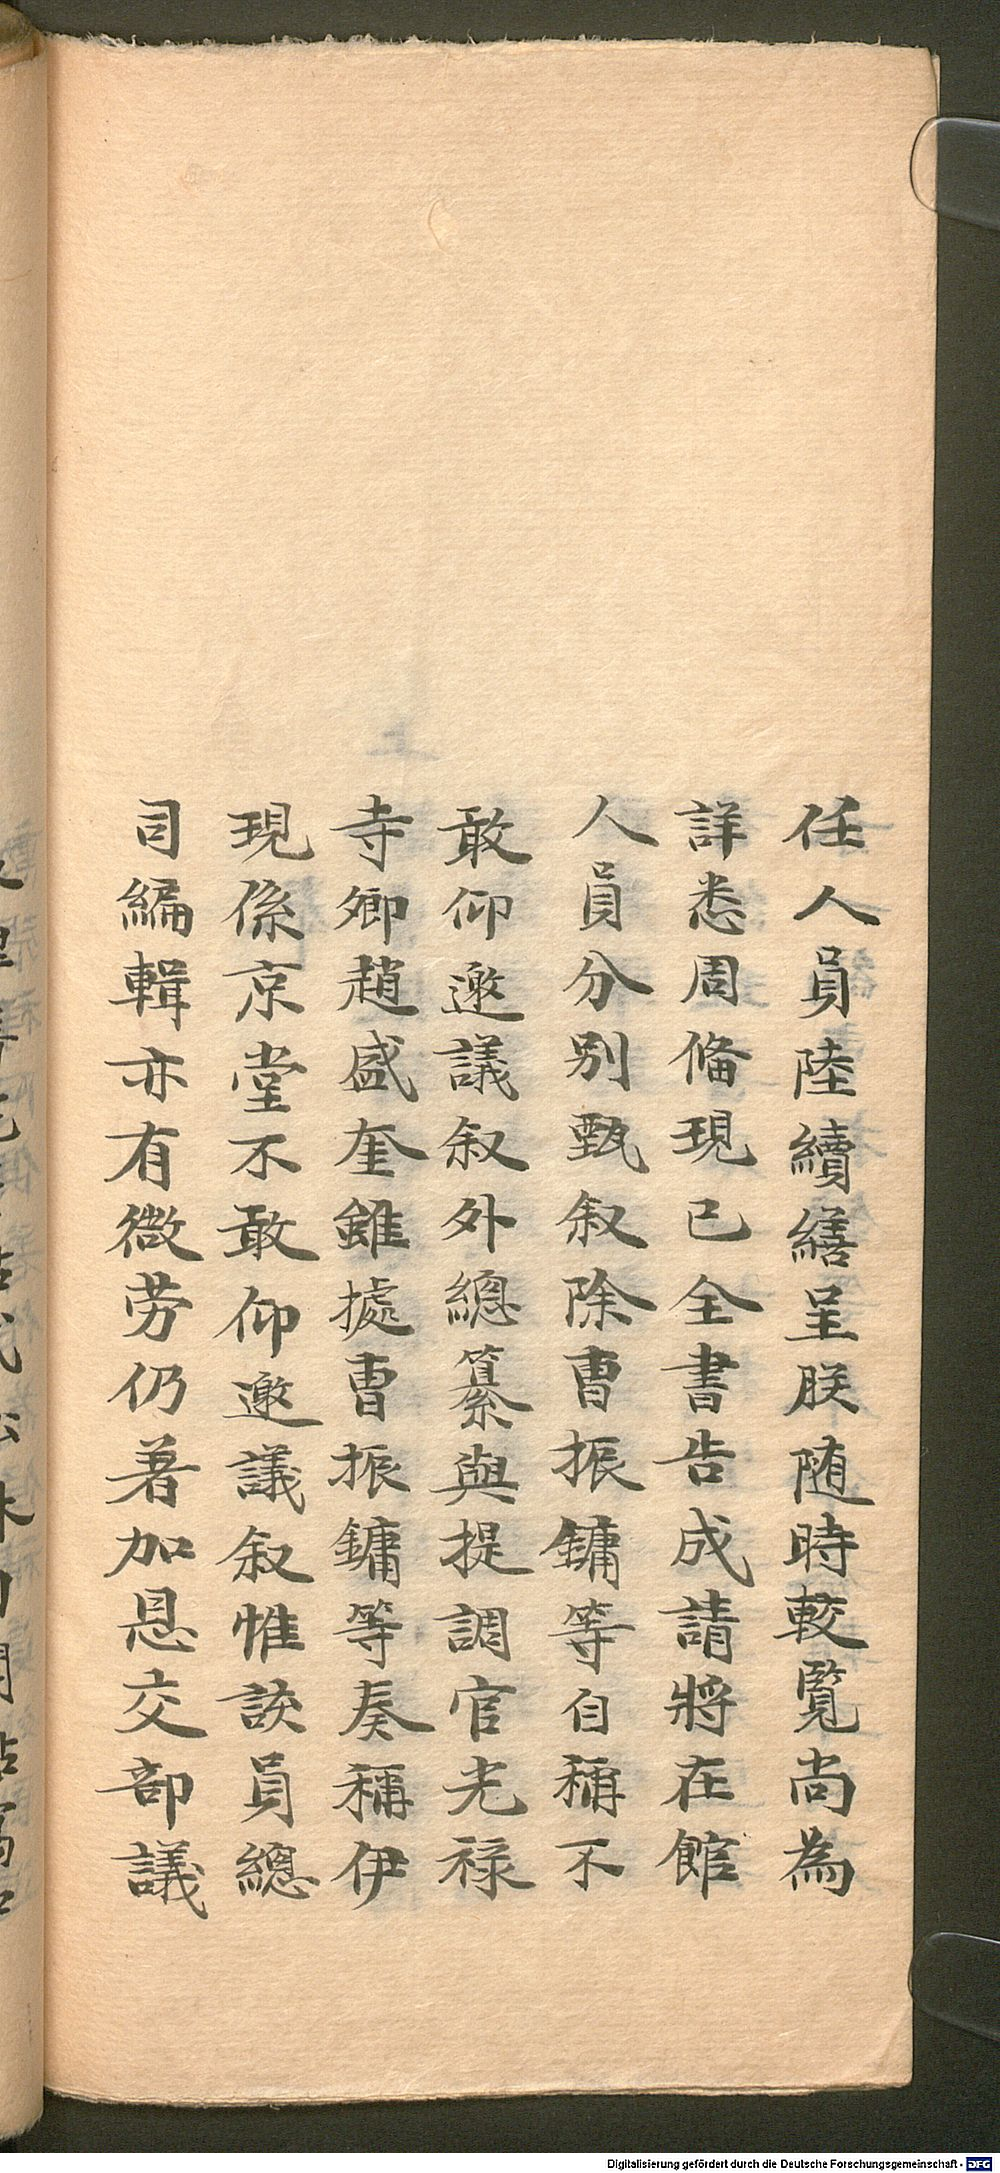 任人員陸續繕呈朕随時較覧尚為
詳悉周俻現已全書告成請將在館
人員分別甄叙除曹振鏞等自稱不
敢仰邀議叙外總纂與提調官光禄
寺卿趙盛奎雖據曹振鏞等奏稱伊
現係京堂不敢仰邀議叙惟該員總
司編輯亦有微劳仍著加恩交部議
Digitalisierung gefördert durch die Deutsche Forschungsgemeinschaft - DFG